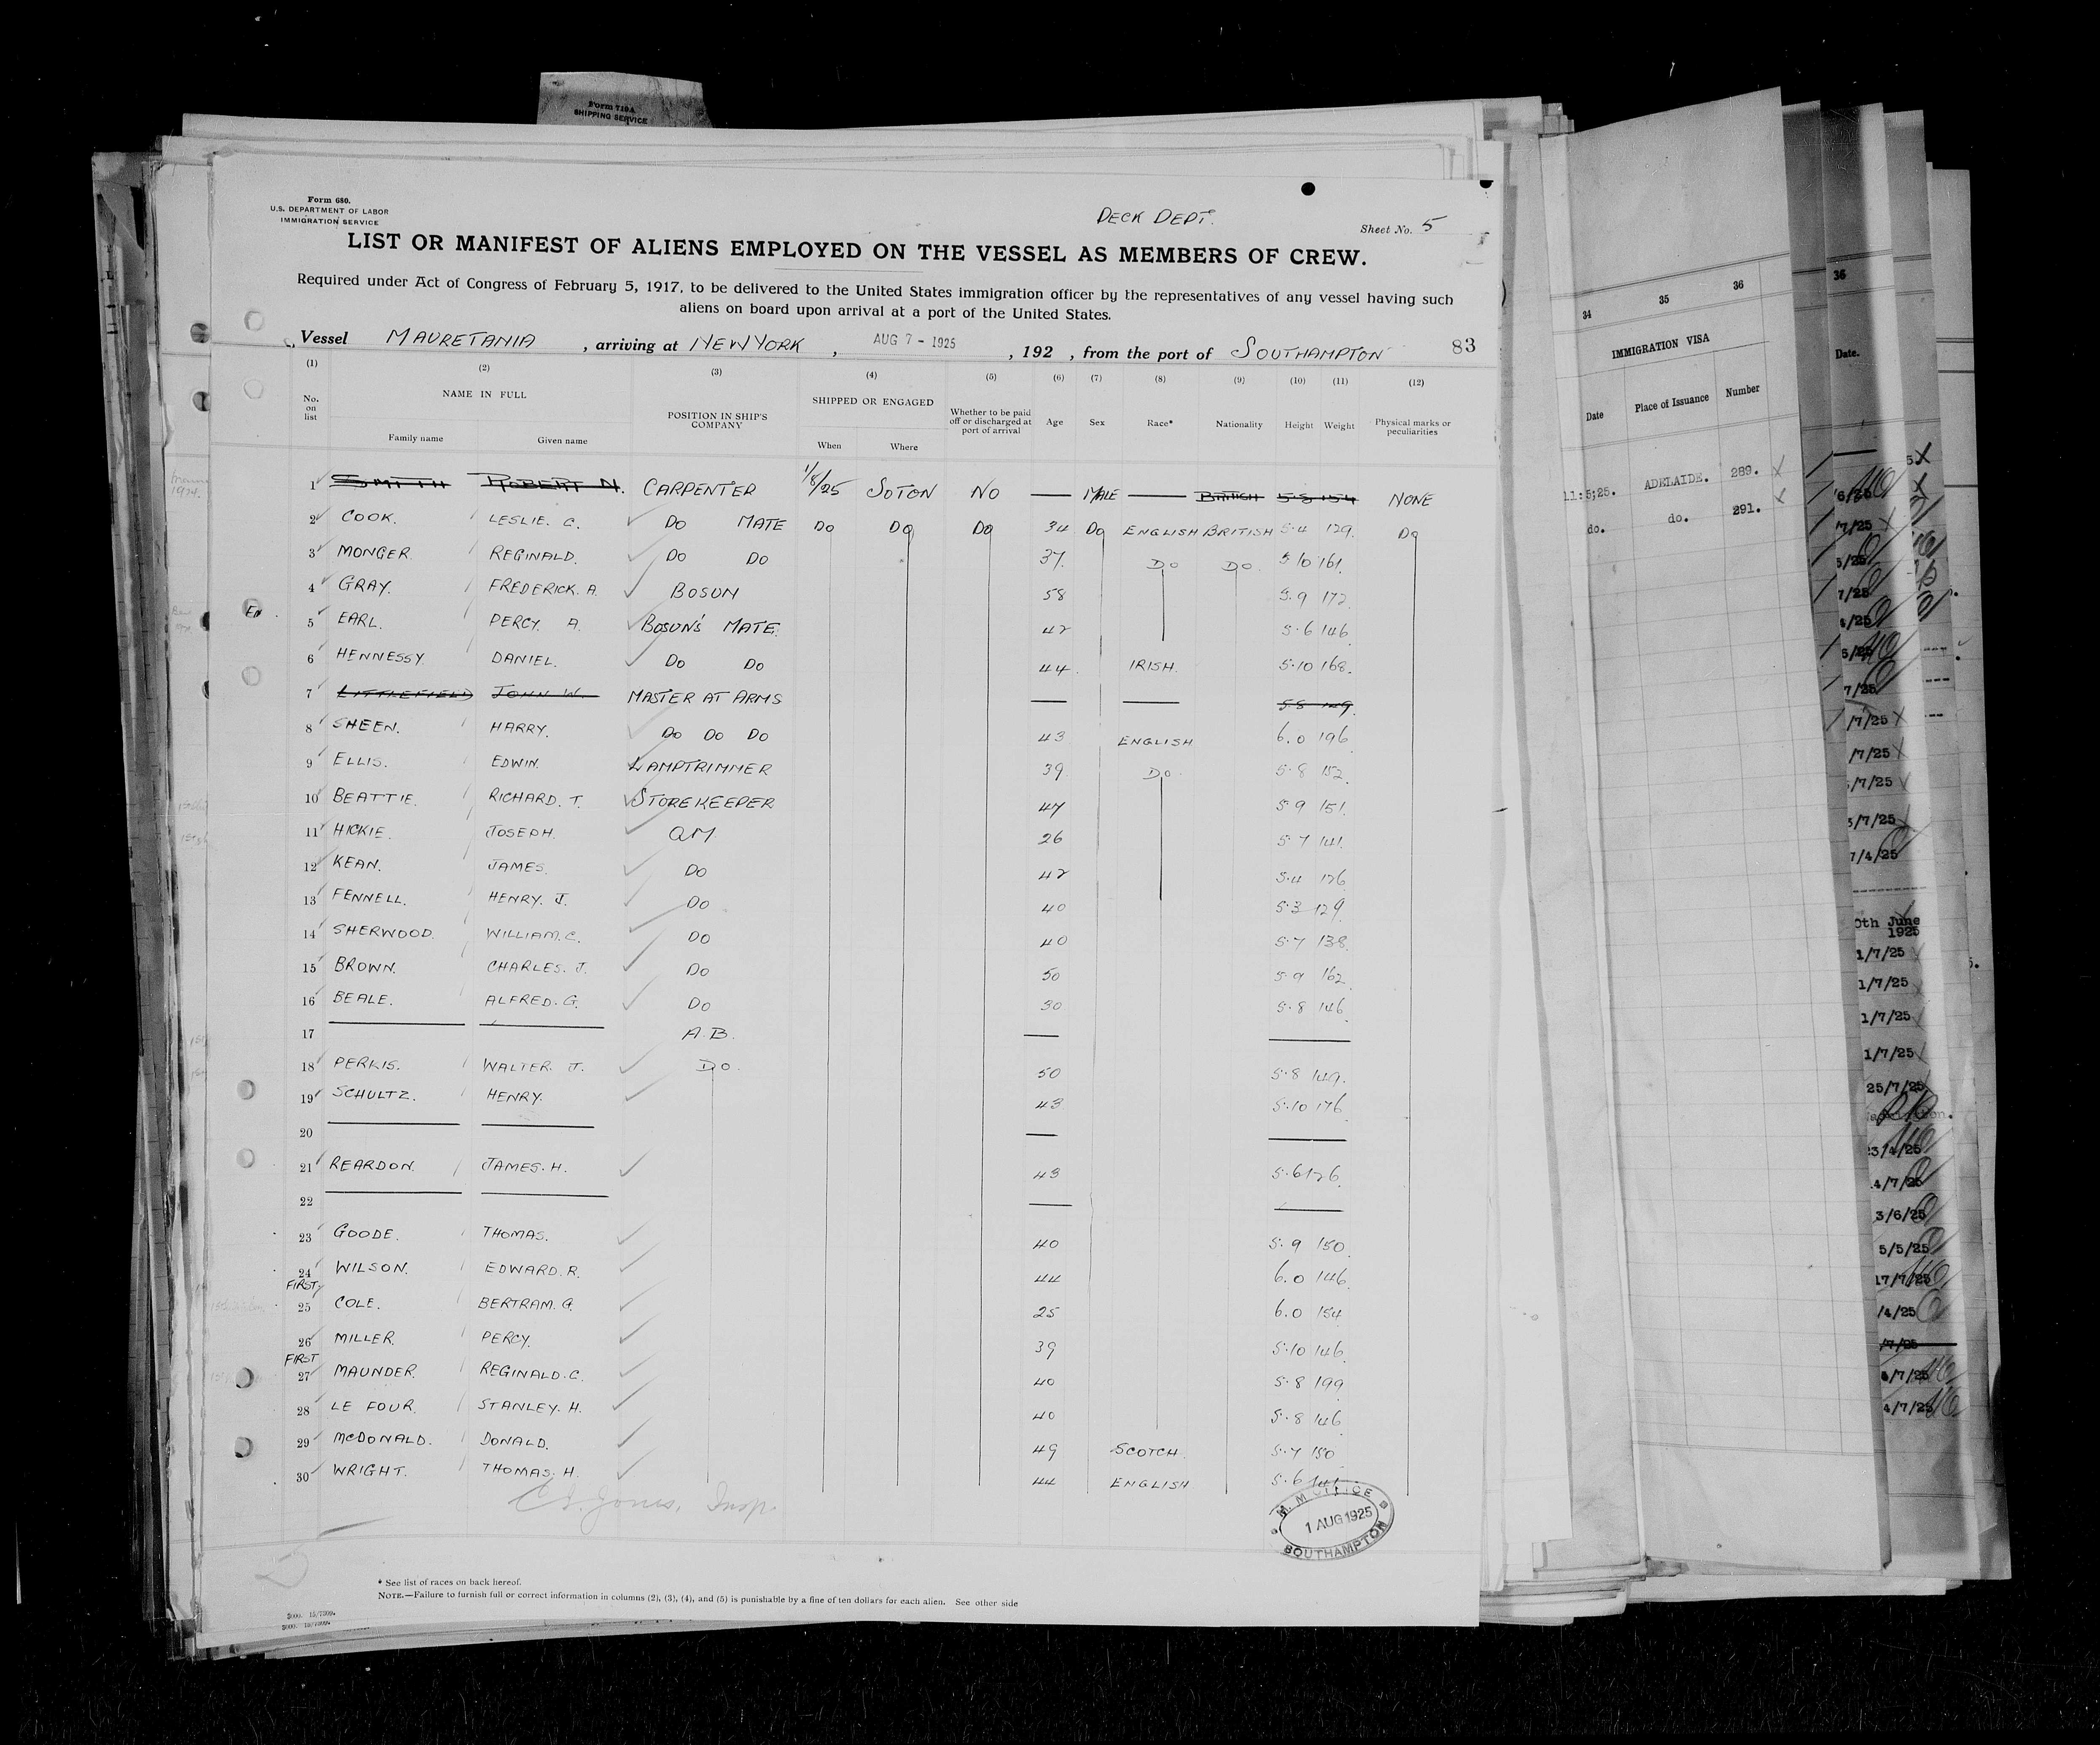 Form 719A
SHIPPING SERVICE
Form 680.
U.S. DEPARTMENT OF LABOR
IMMIGRATION SERVICE
DECK DEPT.
Sheet No. 5
LIST OR MANIFEST OF ALIENS EMPLOYED ON THE VESSEL AS MEMBERS OF CREW.
Required under Act of Congress of February 5, 1917, to be delivered to the United States immigration officer by the representatives of any vessel having such
aliens on board upon arrival at a port of the United States.
Vessel MAURETANIA, arriving at NEW YORK, AUG 7 - 1925, 192 , from the port of SOUTHAMPTON 83
(1) (2) (3) (4) (5) (6) (7) (8) (9) (10) (11) (12)
No. on list NAME IN FULL POSITION IN SHIP'S COMPANY SHIPPED OR ENGAGED Whether to be paid off or discharged at port of arrival Age Sex Race* Nationality Height Weight Physical marks or peculiarities
Family name Given name When Where
1 SMITH ROBERT N. CARPENTER 1/8/25 SOTON NO — MALE — BRITISH 5·8 154 NONE
2 COOK. LESLIE. C. DO MATE DO DO DO 34 DO ENGLISH BRITISH 5·4 129. DO
3 MONGER REGINALD. DO DO 37. DO DO 5·10 161.
4 GRAY. FREDERICK. A. BOSUN 58 5·9 172.
5 EARL. PERCY A. BOSUN'S MATE. 42 5·6 146
6 HENNESSY. DANIEL. DO DO 44 IRISH. 5·10 168.
7 LITTLEFIELD JOHN W. MASTER AT ARMS — — 5·8 149.
8 SHEEN. HARRY. DO DO DO 43 ENGLISH 6.0 196
9 ELLIS. EDWIN. LAMPTRIMMER 39 DO 5·8 152.
10 BEATTIE. RICHARD. T. STOREKEEPER 47 5·9 151.
11 HICKIE. JOSEPH. QM. 26 5·7 141.
12 KEAN. JAMES. DO 42 5·4 126
13 FENNELL. HENRY. J. DO 40 5·3 129.
14 SHERWOOD. WILLIAM. C. DO 40 5·7 138.
15 BROWN. CHARLES. J. DO 50 5·9 162.
16 BEALE. ALFRED. G. DO 30 5·8 146.
17 — — A.B. — —
18 PERKIS. WALTER. J. DO. 50 5·8 149.
19 SCHULTZ. HENRY. 43 5·10 176.
20 — — — —
21 REARDON. JAMES. H. 43 5·6 126.
22 — — — —
23 GOODE. THOMAS. 40 5·9 150.
24 WILSON. EDWARD. R. 44 6.0 146.
FIRST
25 COLE. BERTRAM. G. 25 6.0 154
26 MILLER. PERCY. 39 5·10 146.
FIRST
27 MAUNDER. REGINALD. C. 40 5·8 199
28 LE FOUR. STANLEY. H. 40 5·8 146
29 McDONALD. DONALD. 49 SCOTCH. 5·7 150
30 WRIGHT. THOMAS. H. 44 ENGLISH 5·6 141.
Jones, Insp.
M. M OFFICE
1 AUG 1925
SOUTHAMPTON
* See list of races on back hereof.
NOTE.—Failure to furnish full or correct information in columns (2), (3), (4), and (5) is punishable by a fine of ten dollars for each alien. See other side
3000. 15/7309.
34 35 36
IMMIGRATION VISA
Date Place of Issuance Number
11:5;25. ADELAIDE. 289. X
do. do. 291. X
36
Date.
7/25
5/25
7/25
5/25
7/25
/7/25
/7/25
/7/25
5/7/25
7/4/25
0th June
1925
1/7/25
1/7/25
1/7/25
1/7/25
25/7/25
3/4/25
4/7/25
3/6/25
5/5/25
17/7/25
/4/25
/7/25
/7/25
4/7/25